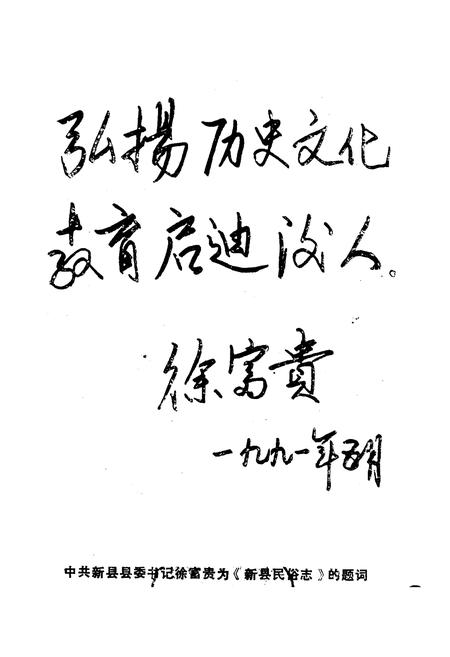 弘揚历史文化
教育启迪後人。
徐富貴
一九九一年五月
中共新县县委书记徐富贵为《新县民俗志》的题词